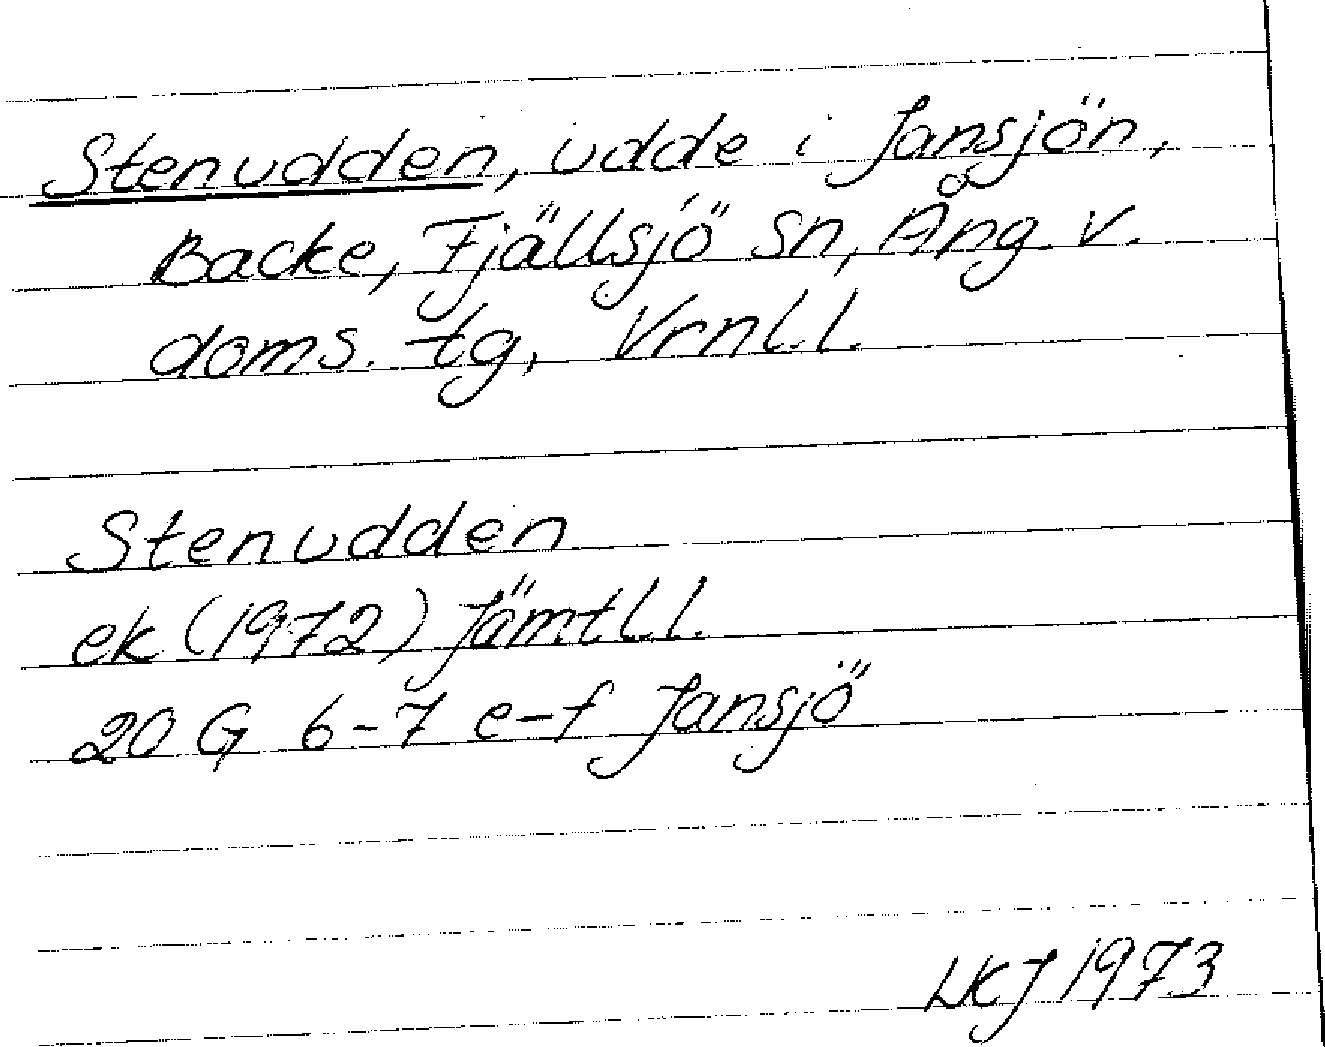 Stenudden, udde i Jansjön,
Backe, Fjällsjö sn, Ång. v.
doms. tg, Vrnl.l.
Stenudden
ek (1972) Jämtl l.
20 G 6-7 e-f Jansjö
LKJ 1973